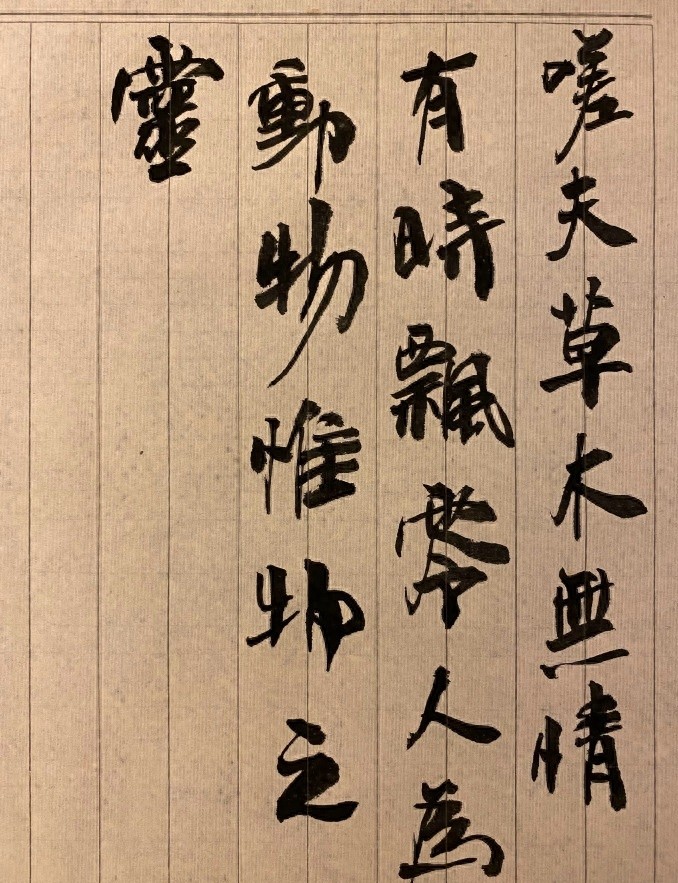 嗟夫草木無情
有時飄零人為
動物惟物之
靈